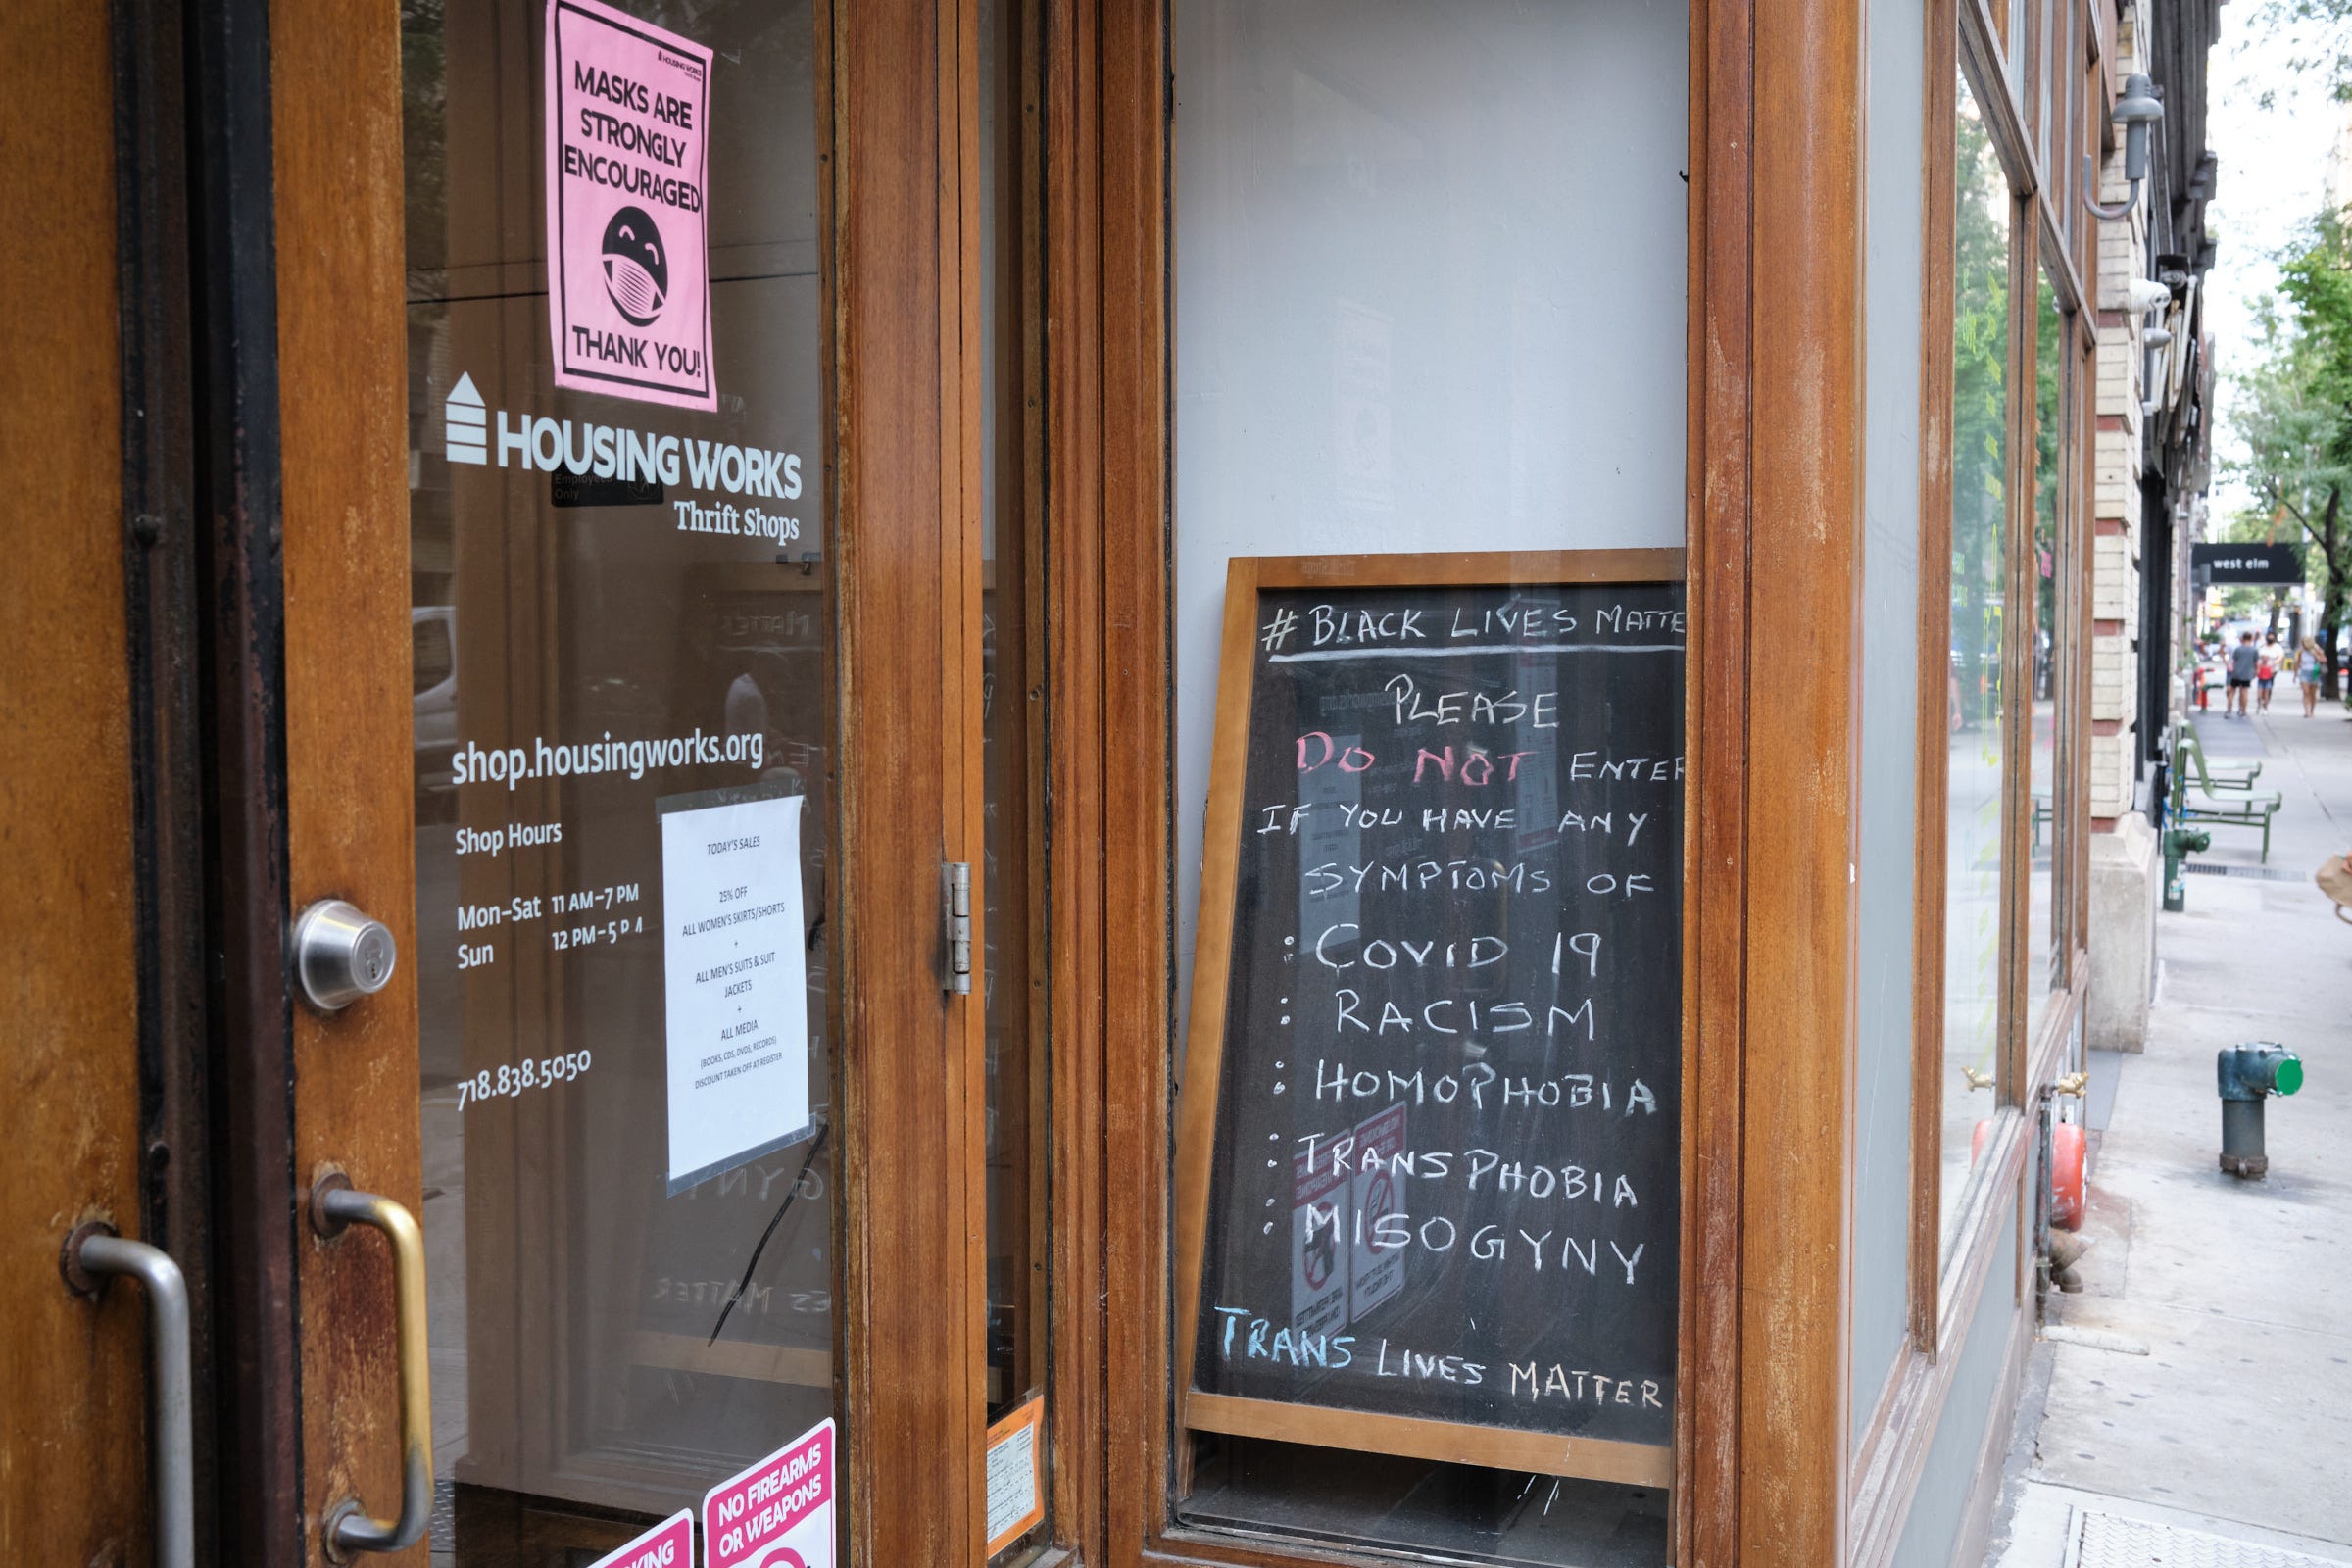 HOUSING WORKS
MASKS ARE
STRONGLY
ENCOURAGED
THANK YOU!
HOUSING WORKS
Thrift Shops
Employees
Only
shop.housingworks.org
Shop Hours
Mon–Sat 11 AM–7 PM
Sun 12 PM–5 P
718.838.5050
TODAY'S SALES
25% OFF
ALL WOMEN'S SKIRTS/SHORTS
+
ALL MEN'S SUITS & SUIT
JACKETS
+
ALL MEDIA
(BOOKS, CDS, DVDS, RECORDS)
DISCOUNT TAKEN OFF AT REGISTER
KING
NO FIREARMS
OR WEAPONS
# BLACK LIVES MATTE
PLEASE
DO NOT ENTER
IF YOU HAVE ANY
SYMPTOMS OF
: COVID 19
: RACISM
: HOMOPHOBIA
: TRANSPHOBIA
: MISOGYNY
TRANS LIVES MATTER
west elm